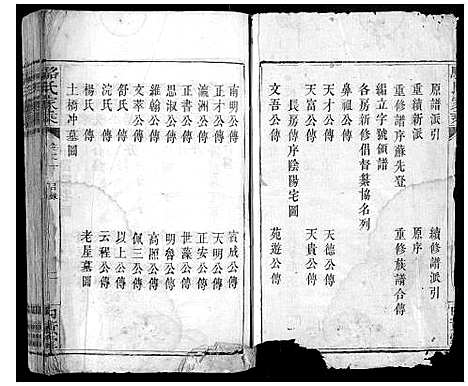 原譜派引
續修譜派引
重續新派
原序
重修譜序蘇先登
重修族譜合傳
編立字號領譜
各房新修倡督纂協名列
鼻祖公傳
天德公傳
天富公傳
天貴公傳
長房傳序陰陽宅圖
文吾公傳
苑遊公傳
南明公傳
賓咸公傳
正才公傳
天明公傳
瀛洲公傳
正安公傳
正書公傳
世藻公傳
思淑公傳
明魯公傳
維翰公傳
高熙公傳
文萃公傳
佩三公傳
舒氏公傳
以上公傳
浣氏公傳
云程公傳
楊氏公傳
老屋墓圖
土橋冲墓圖